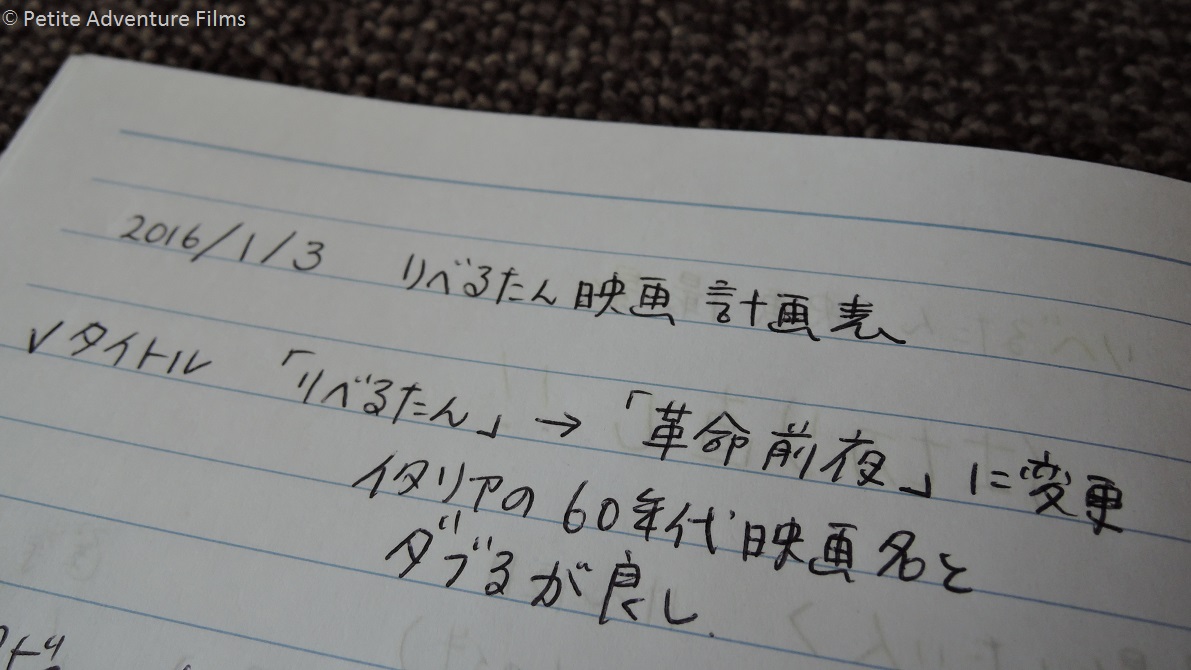 © Petite Adventure Films
2016/1/3 りべるたん映画 計画表
✓タイトル 「りべるたん」→「革命前夜」に変更
イタリアの60年代映画名と
ダブるが良し.